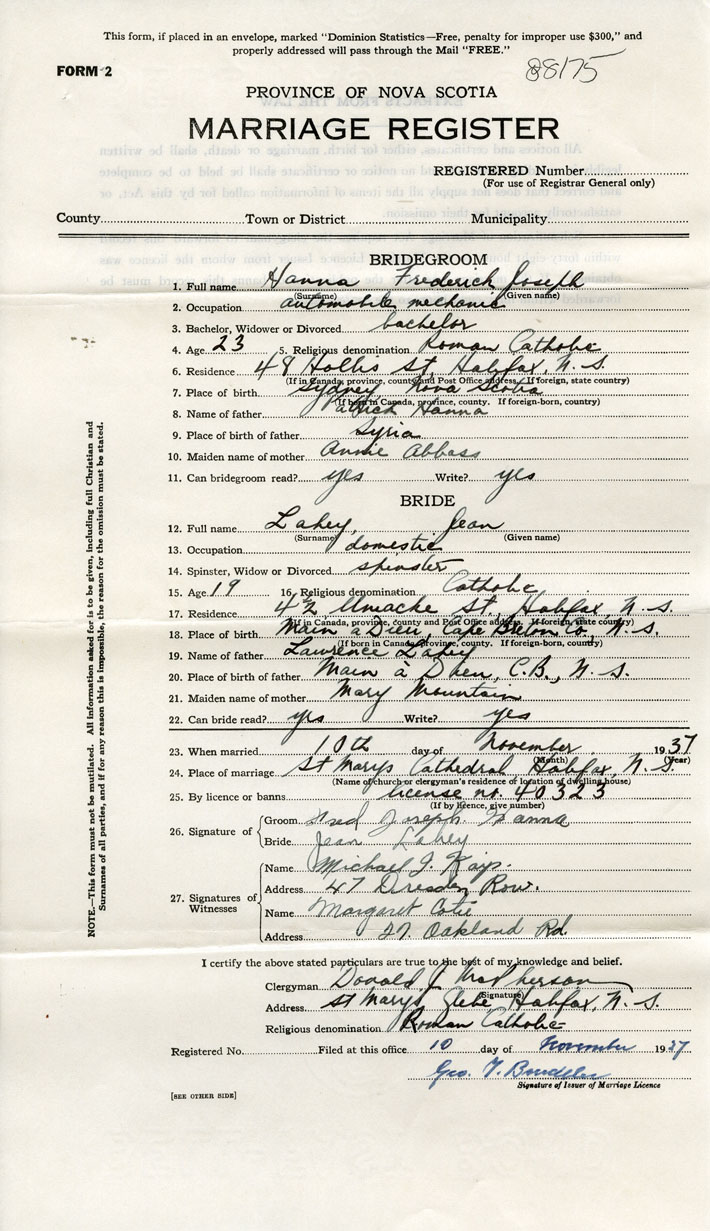 This form, if placed in an envelope, marked "Dominion Statistics—Free, penalty for improper use $300," and
properly addressed will pass through the Mail "FREE."
FORM 2
88175
PROVINCE OF NOVA SCOTIA
MARRIAGE REGISTER
REGISTERED Number
(For use of Registrar General only)
County Town or District Municipality
BRIDEGROOM
1. Full name Hanna Frederick Joseph
(Surname) (Given name)
2. Occupation automobile mechanic
3. Bachelor, Widower or Divorced bachelor
4. Age 23 5. Religious denomination Roman Catholic
6. Residence 48 Hollis St, Halifax, N.S.
(If in Canada, province, county and Post Office address. If foreign, state country)
7. Place of birth Sydney Nova Scotia
(If born in Canada, province, county. If foreign-born, country)
8. Name of father Patrick Hanna
9. Place of birth of father Syria
10. Maiden name of mother Annie Abbass
11. Can bridegroom read? yes Write? yes
BRIDE
12. Full name Lahey, Jean
(Surname) (Given name)
13. Occupation domestic
14. Spinster, Widow or Divorced spinster
15. Age 19 16. Religious denomination Catholic
17. Residence St, Halifax, N.S.
(If in Canada, province, county and Post Office address. If foreign, state country)
18. Place of birth Main à Dieu, Cape Breton Co., N.S.
(If born in Canada, province, county. If foreign-born, country)
19. Name of father Lawrence Lahey
20. Place of birth of father Main à Dieu, C.B., N.S.
21. Maiden name of mother Mary Mountain
22. Can bride read? yes Write? yes
23. When married 10th day of November 1937
(Month) (Year)
24. Place of marriage St Marys Cathedral Halifax, N.S.
(Name of church or clergyman's residence or location of dwelling house)
25. By licence or banns license no. 40323
(If by licence, give number)
26. Signature of Groom Fred Joseph Hanna
Bride Jean Lahey
27. Signatures of Witnesses Name Michael J.
Address 47 Dresden Row.
Name Margaret
Address 27 Oakland Rd
I certify the above stated particulars are true to the best of my knowledge and belief.
Clergyman Donald J MacPherson
(Signature)
Address St Marys Glebe, Halifax, N.S.
Religious denomination Roman Catholic
Registered No. Filed at this office 10 day of November 1937
Geo. T.
Signature of Issuer of Marriage Licence
[SEE OTHER SIDE]
NOTE.—This form must not be mutilated. All information asked for is to be given, including full Christian and
Surnames of all parties, and if for any reason this is impossible, the reason for the omission must be stated.